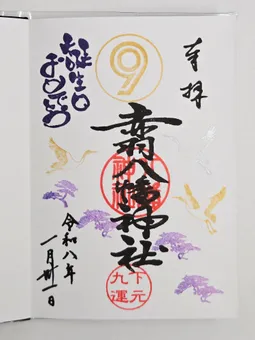 奉拝
⑨
赤羽八幡神社
下元
九運
誕生日
おめでとう
令和八年
一月卅一日